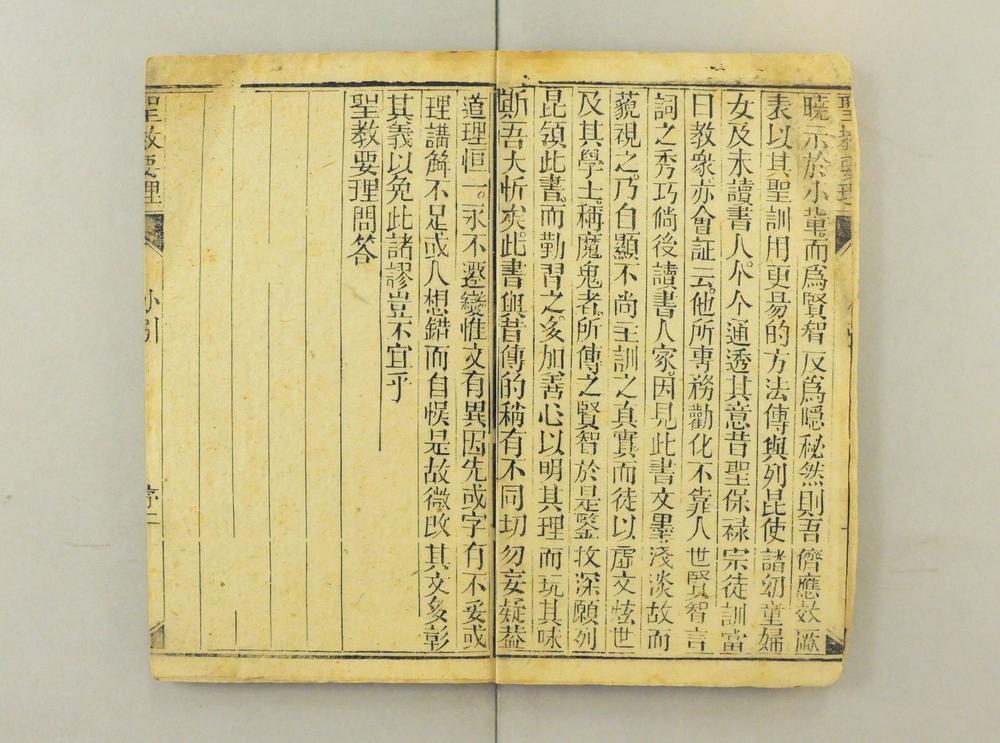 聖教要理
曉示於小輩而爲賢智反爲隱秘然則吾儕應效厥
表以其聖訓用更昜的方法傳與列昆使諸幼童婦
女及未讀書人。个个通透其意昔聖保祿宗徒訓當
日教衆。亦會証云。他所專務勸化不靠人世賢智言
詞之秀巧倘後讀書人家。因見此書文墨淺淡故而
藐視之。乃白顯不尚主訓之真實而徒以虛文炫世
及其學士。稱魔鬼者。所傳之賢智於是鑒牧深願列
昆領此書。而勤習之。多加善心以明其理而玩其味
斯吾大忻矣。此書與昔傳的稍有不同切勿妄疑葢
道理恒一。永不遷變惟文有異因先或字有不妥或
理講解不足或人想錯而自悞是故微改其文多彰
其義以免此諸謬豈不宜乎
聖教要理問答
聖教要理
小引
序二